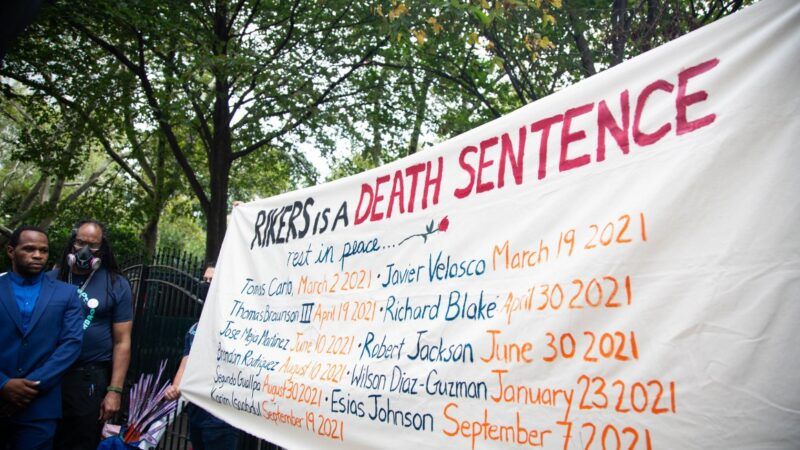 RIKERS IS A DEATH SENTENCE
rest in peace...
Tomas Carlo, March 2 2021 · Javier Velasco March 19 2021
Thomas Braunson III April 19 2021 · Richard Blake April 30 2021
Jose Mejia Martinez June 10 2021 · Robert Jackson June 30 2021
Brandon Rodriguez August 10 2021 · Wilson Diaz-Guzman January 23 2021
Segundo Guallpa August 30 2021 · Esias Johnson September 7 2021
September 19 2021